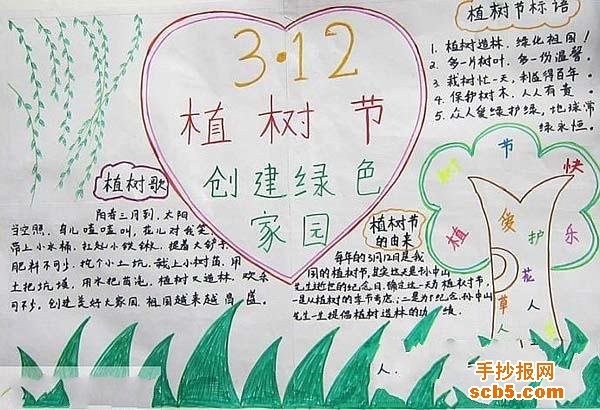 3·12
植树节
创建绿色
家园
植树节标语
1. 植树造林,绿化祖国!
2. 多一片树叶,多一份温馨。
3. 栽树忙一天,利益得百年。
4. 保护树木,人人有责。
5. 众人爱绿护绿,地球常
绿永恒。
植树歌
阳春三月到,太阳
当空照,鸟儿喳喳叫,花儿对我笑,
带上小水桶,扛起小铁锹,提着铲子
肥料不可少,挖个小土坑,栽上小树苗,用
土把坑填,用水把苗浇,植树又造林,欢乐
可不少,创建美好大家园,祖国越来越昌盛。
植树节
的由来
每年的3月12日是我
国的植树节,其实这天是孙中山
先生逝世的纪念日,确定这一天为植树节,
一是从植树的季节考虑,二是为了纪念孙中山
先生一生提倡植树造林的功绩。
植树节快乐
爱护花草人人
人
手抄报网
scb5.com